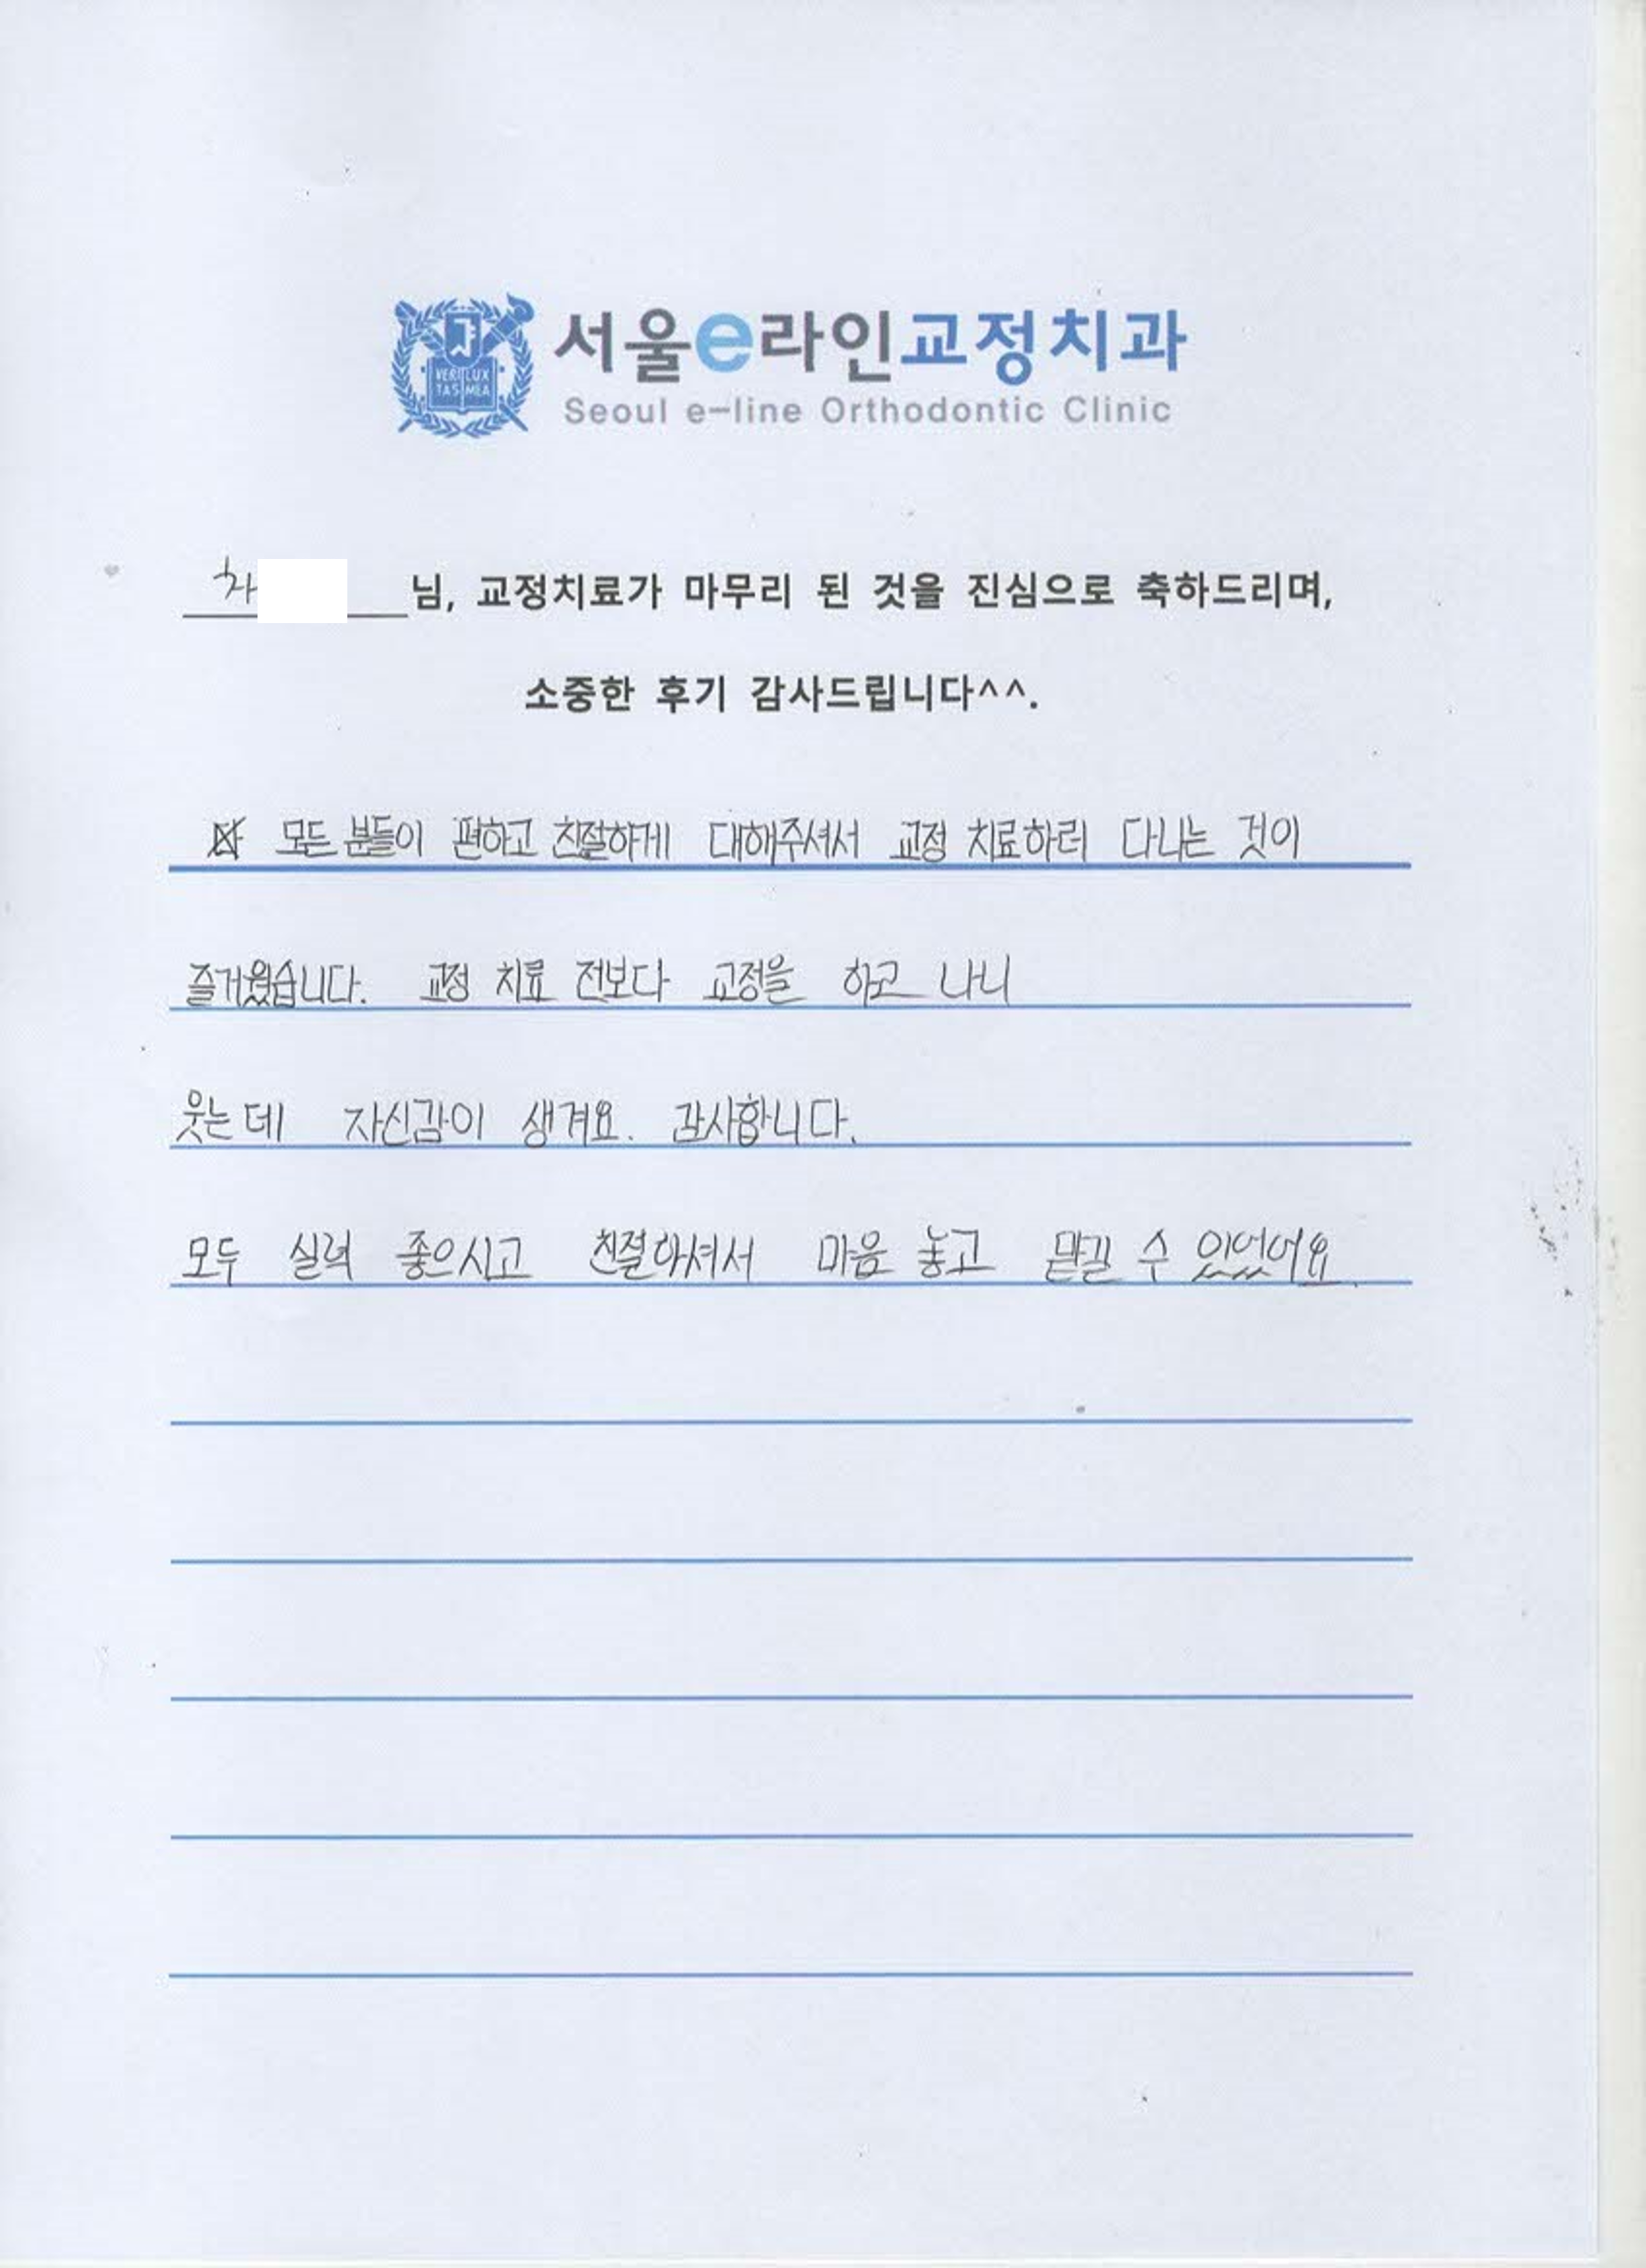 VERI LUX
TAS MEA
서울e라인교정치과
Seoul e-line Orthodontic Clinic
차 님, 교정치료가 마무리 된 것을 진심으로 축하드리며,
소중한 후기 감사드립니다^^.
모든 분들이 편하고 친절하게 대해주셔서 교정 치료하러 다니는 것이
즐거웠습니다. 교정 치료 전보다 교정을 하고 나니
웃는데 자신감이 생겨요. 감사합니다.
모두 실력 좋으시고 친절하셔서 마음 놓고 맡길 수 있었어요.